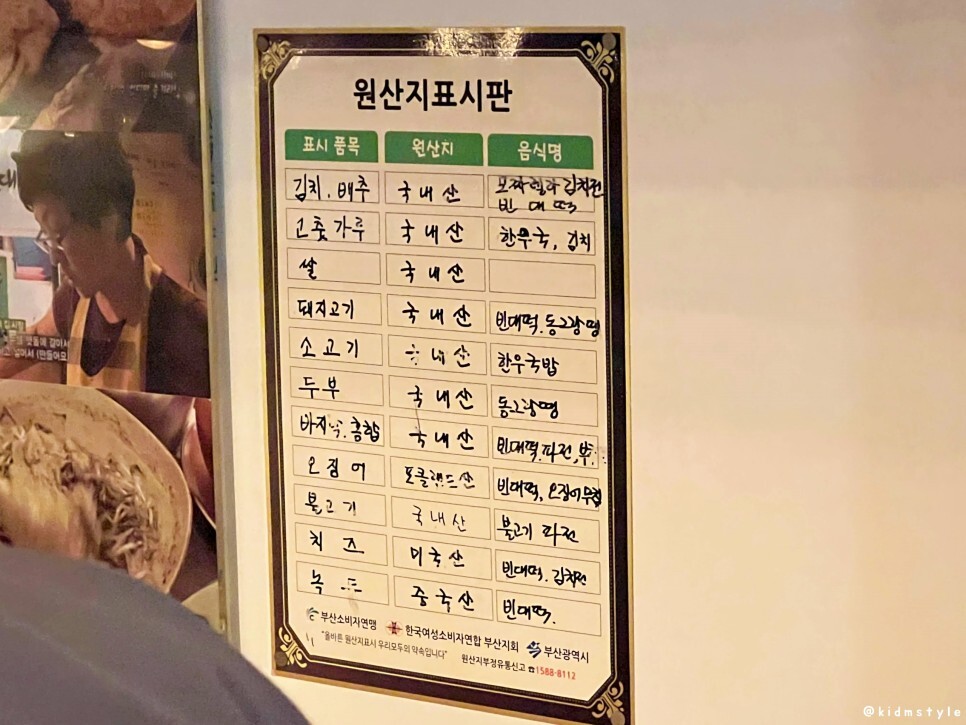 원산지표시판
표시 품목 원산지 음식명
김치. 배추 국내산 모짜렐라 김치전
빈대떡
고춧가루 국내산 한우국, 김치
쌀 국내산
돼지고기 국내산 빈대떡. 동그랑땡
소고기 국내산 한우국밥
두부 국내산 동그랑땡
바지락. 홍합 국내산 빈대떡. 파전,
오징어 포클랜드산 빈대떡, 오징어무침
불고기 국내산 불고기 파전
치즈 미국산 빈대떡. 김치전
녹두 중국산 빈대떡.
부산소비자연맹 한국여성소비자연합 부산지회 부산광역시
"올바른 원산지표시 우리모두의 약속입니다" 원산지부정유통신고 ☎1588-8112
@kidmstyle